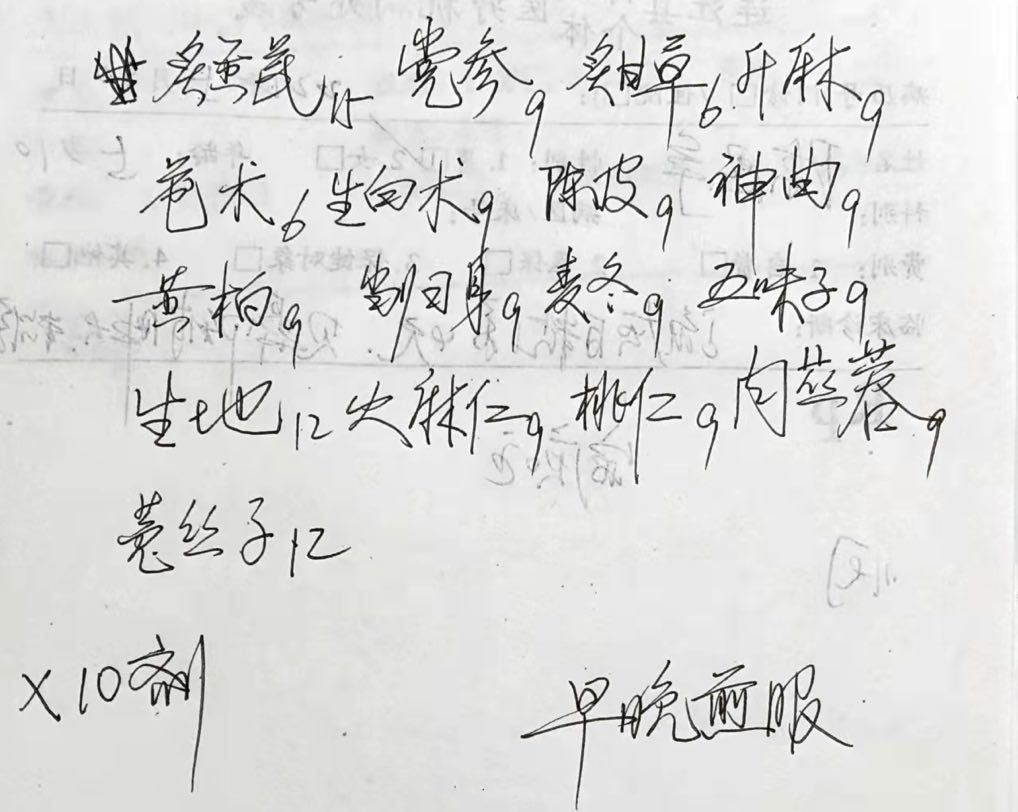 炙黄芪15 党参9 炙甘草6 升麻9
苍术6 生白术9 陈皮9 神曲9
黄柏9 当归身9 麦冬9 五味子9
生地12 火麻仁9 桃仁9 肉苁蓉9
菟丝子12
×10剂 早晚煎服